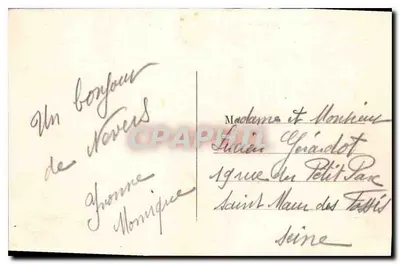 Un bonjour
de Nevers
Yvonne
Monique
Madame et Monsieur
Lucien Girardot
19 rue du Petit Parc
Saint Maur des Fossés
Seine
CPAPHIL